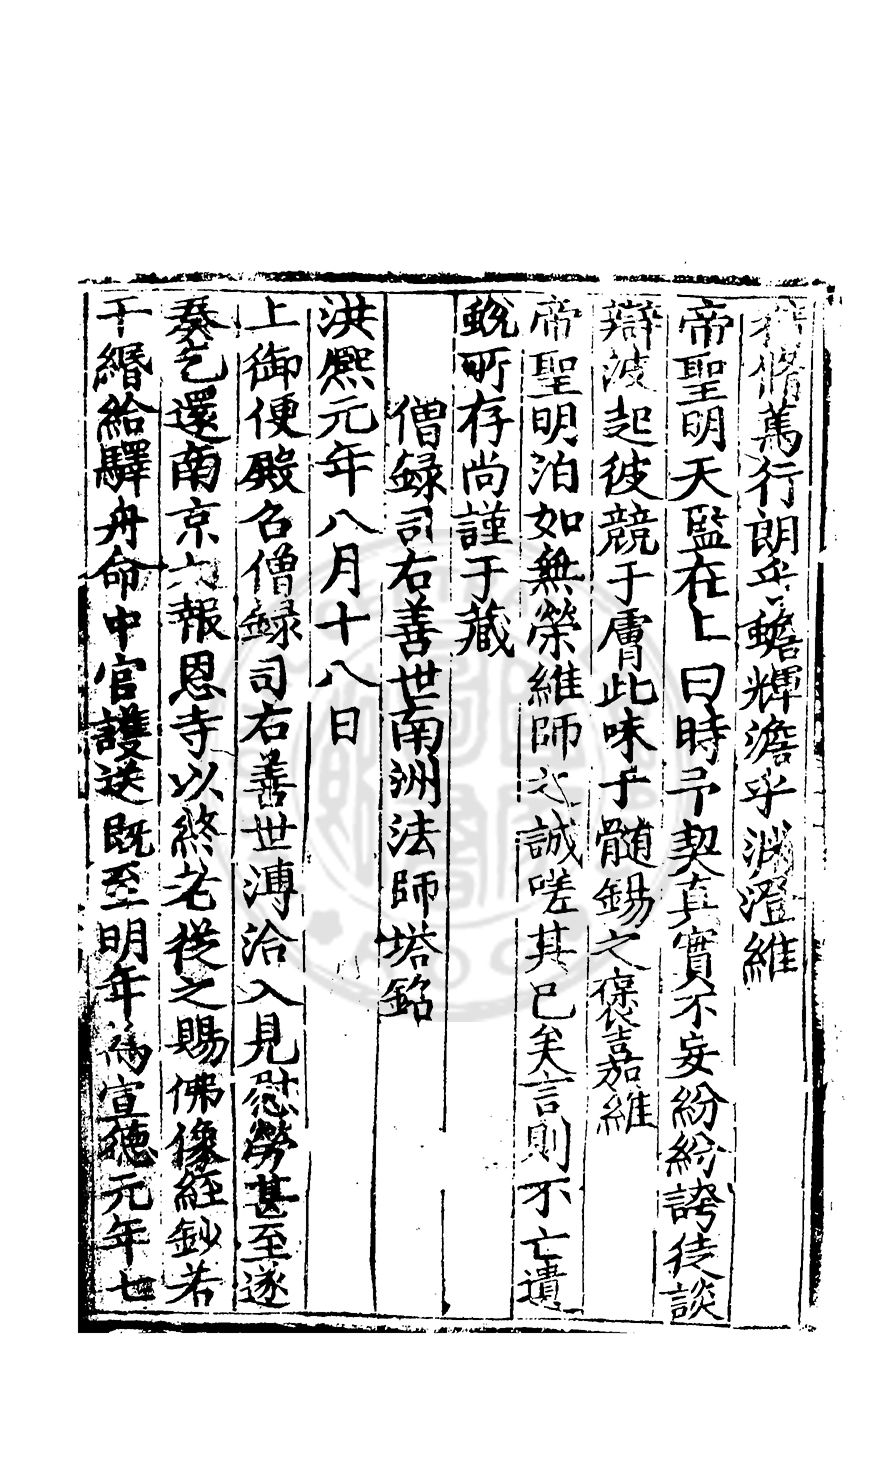 脩萬行朗乎蟾輝澹乎淵澄維
帝聖明天監在上曰時予契真實不妄紛紛誇徒談
辯波起彼競于膚此味于髓錫之褒嘉維
帝聖明泊如無榮維師之誠嗟其已矣言則不亡遺
蛻所存尚謹于藏
僧録司右善世南洲法師塔銘
洪熙元年八月十八日
上御便殿召僧録司右善世溥洽入見慰勞甚至遂
奏乞還南京大報恩寺以終老從之賜佛像經鈔若
干緡給驛舟命中官護送既至明年為宣德元年七